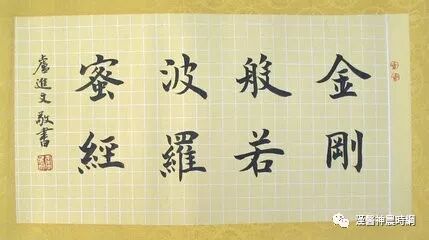 金剛
般若
波羅
蜜經
盧進文敬書
漢醫神農時網